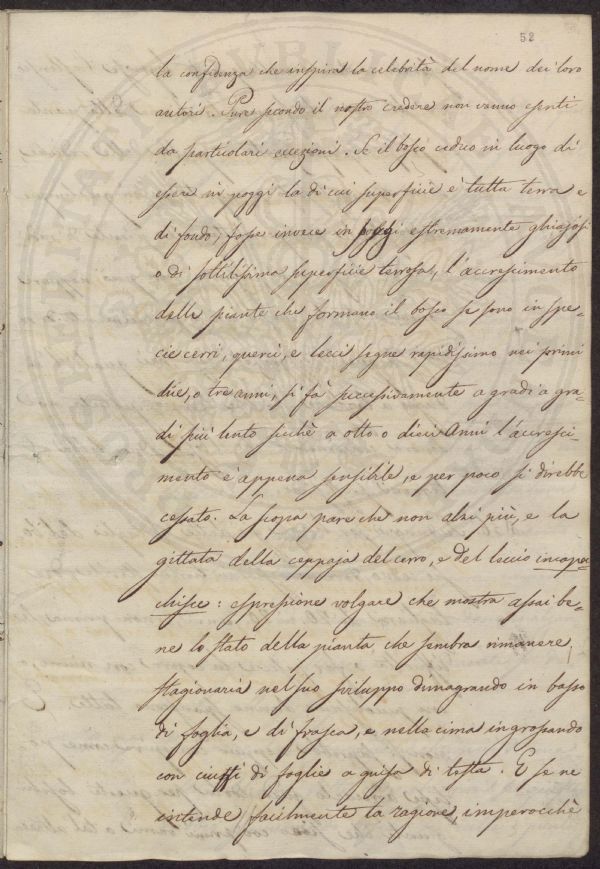 52
la confidenza che inspira la celebrità del nome dei loro
autori. Pure secondo il nostro credere non vanno esenti
da particolari eccezioni. Se il bosco ceduo in luogo di
essere in poggi la di cui superficie è tutta terra e
di fondo, fosse invece in poggi estremamente ghiajosi
o di sottilissima superficie terrosa, l'accrescimento
delle piante che formano il bosco se sono in spe=
cie cerri, querci, e lecci segue rapidissimo nei primi
due, o tre anni, si fà successivamente a gradi a gra=
di più lento sicchè a otto o dieci Anni l'accresci=
mento è appena sensibile, e per poco si direbbe
cessato. La scopa pare che non alzi più, e la
gittata della ceppaja del cerro, e del leccio incapac
chisce: espressione volgare che mostra assai be=
ne lo stato della pianta che sembra rimanere
stagionaria nel suo sviluppo dimagrando in basso
di foglia, e di frasca, e nella cima ingrossando
con ciuffi di foglie a guisa di testa. E se ne
intende facilmente la ragione, imperocchè